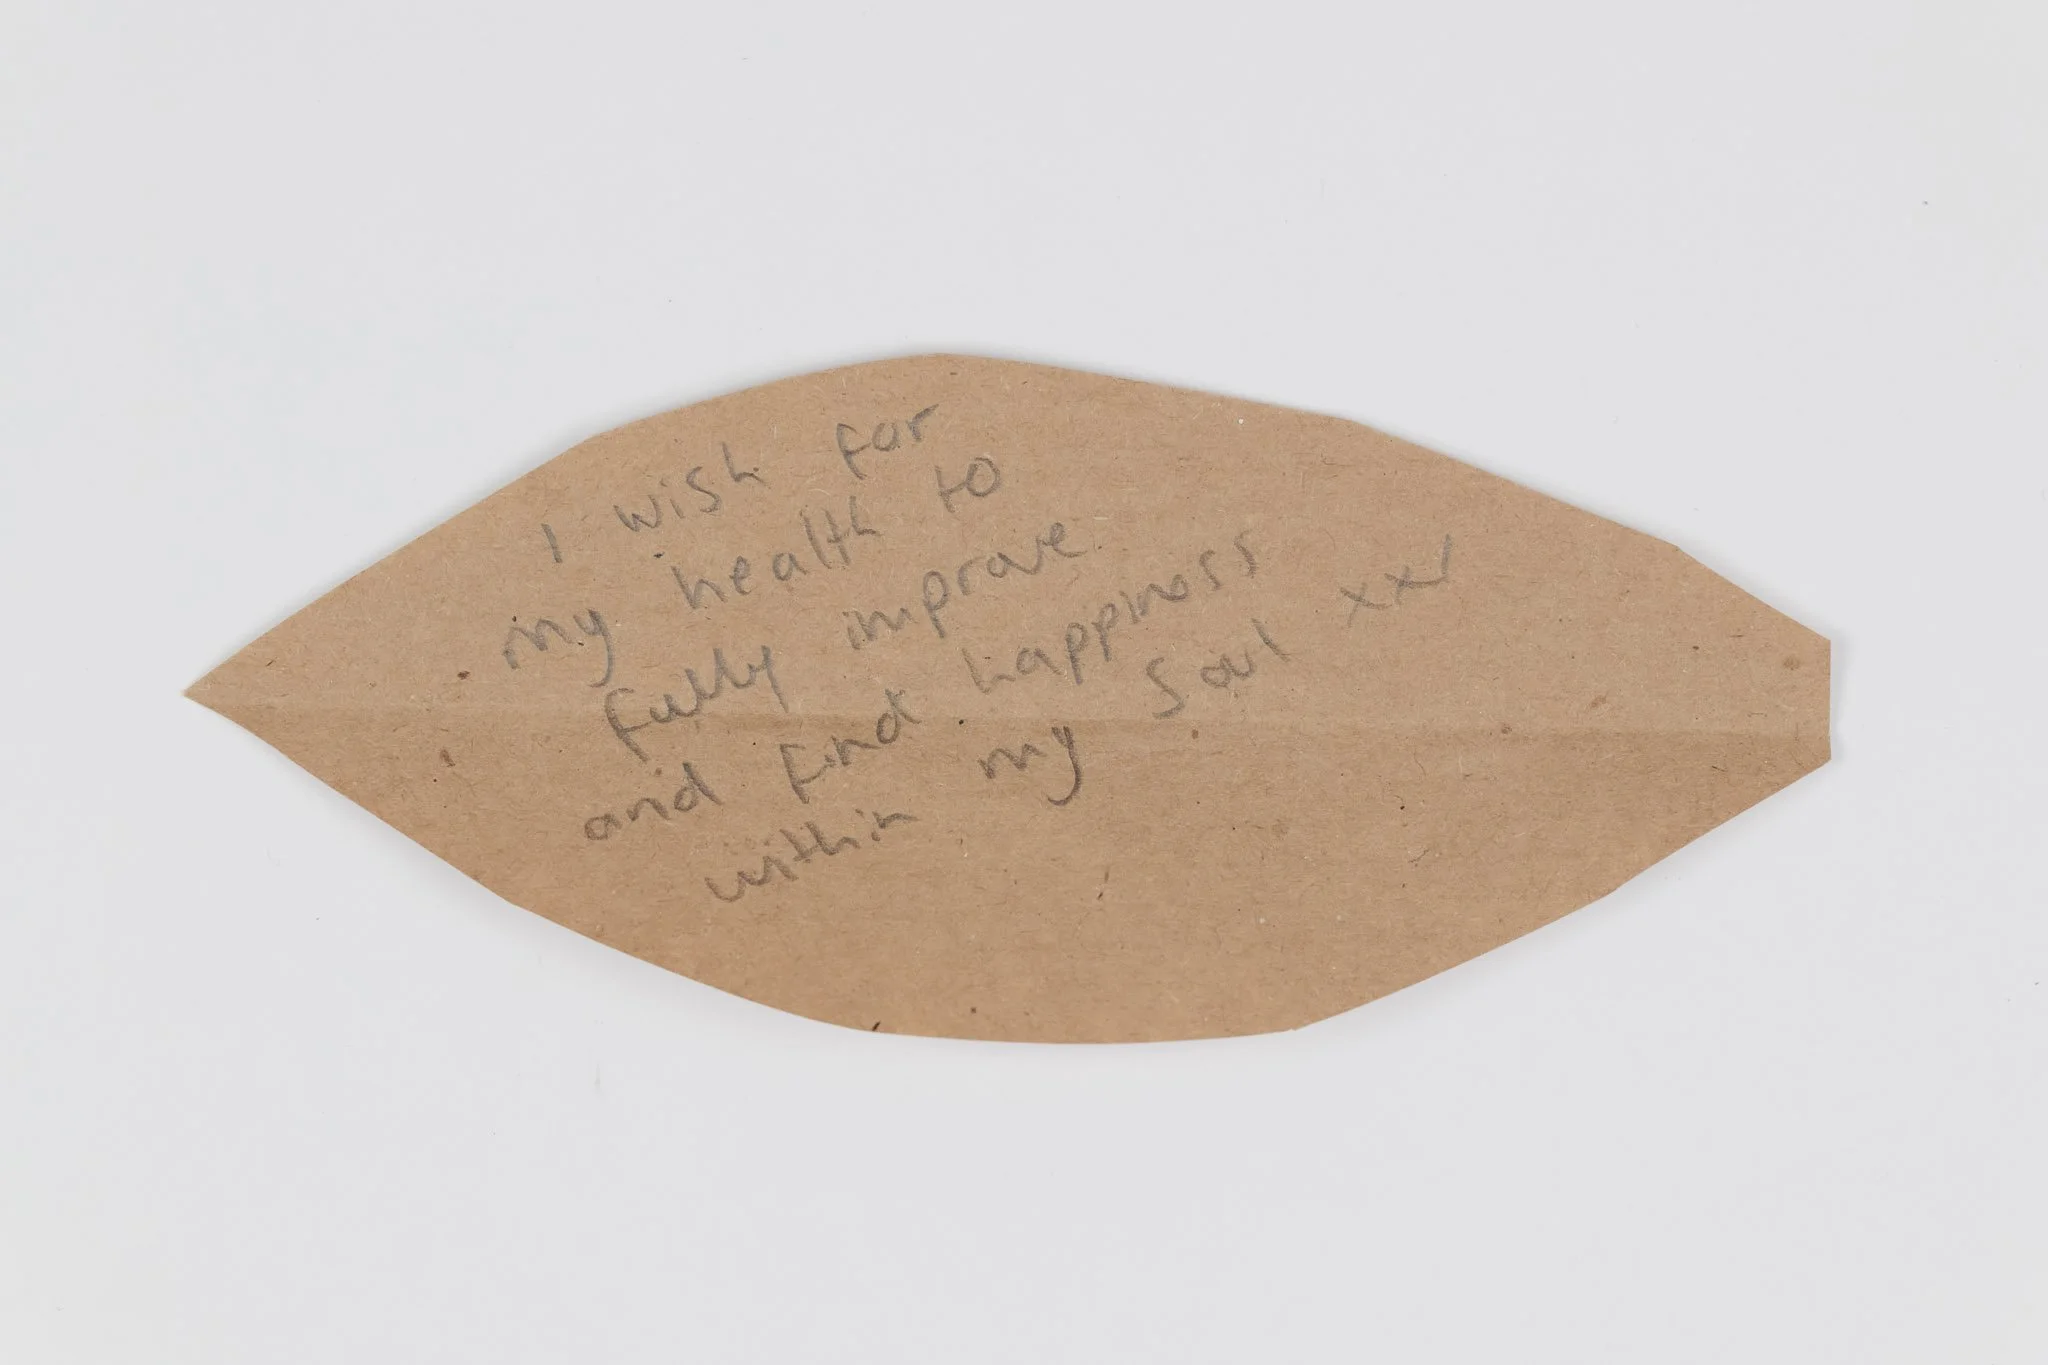 I wish for
my health to
fully improve
and find happiness
within my soul xxx